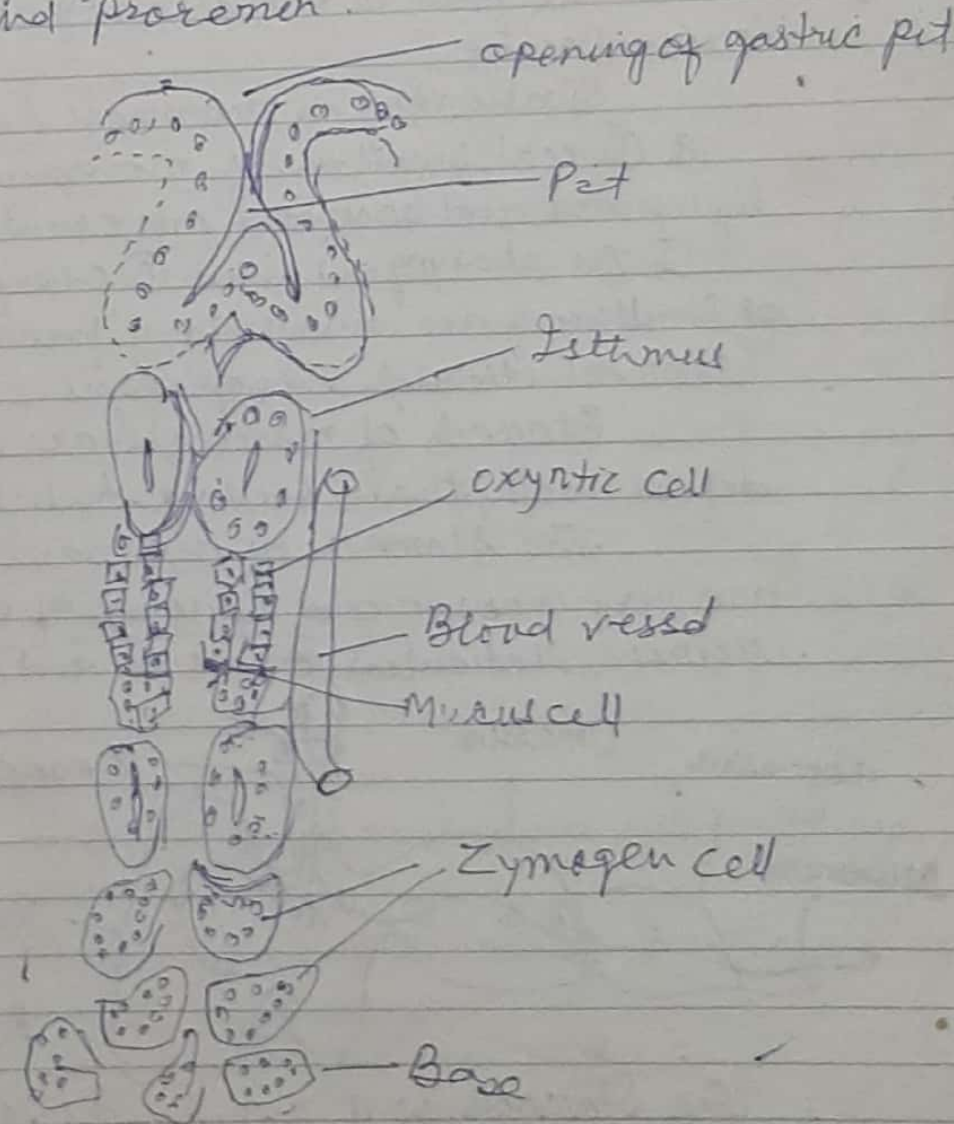 opening of gastric pit
Pit
Isthmus
oxyntic cell
Blood vessel
Mucus cell
Zymogen cell
Base